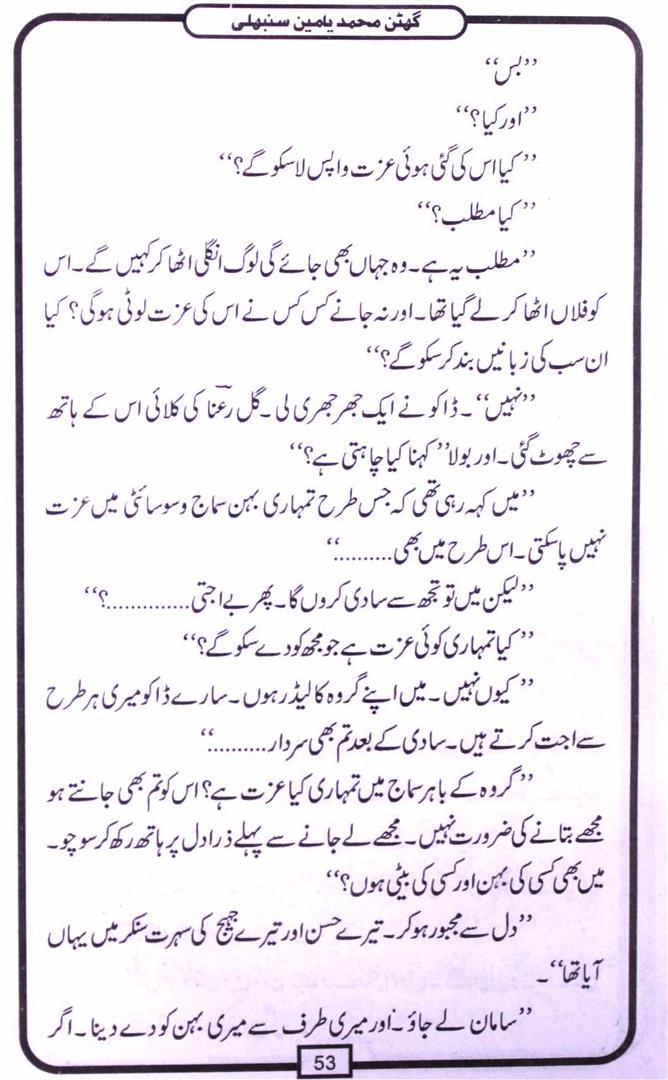 گھٹن محمد یامین سنبھلی
’’بس‘‘
’’اور کیا؟‘‘
’’کیا اس کی گئی ہوئی عزت واپس لاسکو گے؟‘‘
’’کیا مطلب؟‘‘
’’مطلب یہ ہے۔ وہ جہاں بھی جائے گی لوگ انگلی اٹھا کر کہیں گے۔ اس
کو فلاں اٹھا کر لے گیا تھا۔ اور نہ جانے کس کس نے اس کی عزت لوٹی ہوگی؟ کیا
ان سب کی زبانیں بند کر سکو گے؟‘‘
’’نہیں‘‘۔ ڈاکو نے ایک جھرجھری لی۔ گل رعنا کی کلائی اس کے ہاتھ
سے چھوٹ گئی۔ اور بولا’’ کہنا کیا چاہتی ہے؟‘‘
’’میں کہہ رہی تھی کہ جس طرح تمہاری بہن سماج وسوسائٹی میں عزت
نہیں پاسکتی۔ اس طرح میں بھی..........‘‘
’’لیکن میں تو تجھ سے سادی کروں گا۔ پھر بے اجتی..............؟‘‘
’’کیا تمہاری کوئی عزت ہے جو مجھ کو دے سکو گے؟‘‘
’’کیوں نہیں۔ میں اپنے گروہ کا لیڈر ہوں۔ سارے ڈاکو میری ہر طرح
سے اجت کرتے ہیں۔ سادی کے بعد تم بھی سردار..........‘‘
’’گروہ کے باہر سماج میں تمہاری کیا عزت ہے؟ اس کو تم بھی جانتے ہو
مجھے بتانے کی ضرورت نہیں۔ مجھے لے جانے سے پہلے ذرا دل پر ہاتھ رکھ کر سوچو۔
میں بھی کسی کی بہن اور کسی کی بیٹی ہوں؟‘‘
’’دل سے مجبور ہوکر۔ تیرے حسن اور تیرے جہیج کی سہرت سنکر میں یہاں
آیا تھا‘‘۔
’’سامان لے جاؤ۔ اور میری طرف سے میری بہن کو دے دینا۔ اگر
53